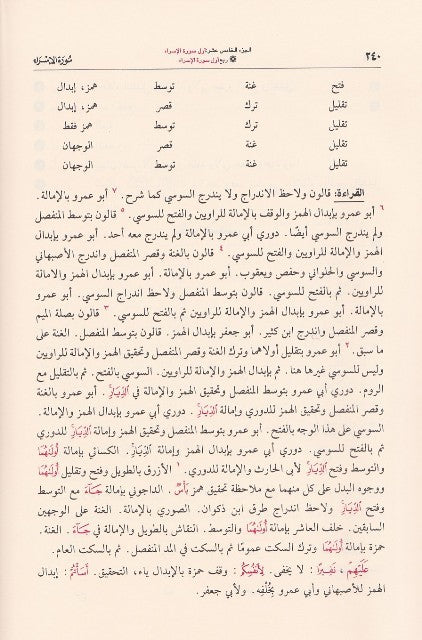 الجزء الخامس عشر/أول سورة الإسراء
٢٤٠
ربع أول سورة الإسراء
سُورَةُ الإسْرَاء
فتح غنة توسط همز، إبدال
تقليل ترك قصر همز، إبدال
تقليل ترك توسط همز فقط
تقليل غنة قصر الوجهان
تقليل غنة توسط الوجهان
القراءة: قالون ولاحظ الاندراج ولا يندرج السوسي كما شرح. ٧ أبو عمرو بالإمالة.
٦ أبو عمرو بإبدال الهمز والوقف بالإمالة للراويين والفتح للسوسي. ٥ قالون بتوسط المنفصل
ولم يندرج السوسي أيضًا. دوري أبي عمرو بالإمالة ولم يندرج معه أحد. أبو عمرو بإبدال
الهمز والإمالة للراويين والفتح للسوسي. ٤ قالون بالغنة وقصر المنفصل واندرج الأصبهاني
والسوسي والحلواني وحفص ويعقوب. أبو عمرو بالإمالة. أبو عمرو بإبدال الهمز والامالة
للراويين. ثم بالفتح للسوسي. قالون بتوسط المنفصل ولاحظ اندراج السوسي. أبو عمرو
بالإمالة. أبو عمرو بإبدال الهمز والإمالة للراويين ثم بالفتح للسوسي. ٣ قالون بصلة الميم
وقصر المنفصل واندرج ابن كثير. أبو جعفر بإبدال الهمز. قالون بتوسط المنفصل. الغنة على
ما سبق. ٢ أبو عمرو بتقليل أولاهما وترك الغنة وقصر المنفصل وتحقيق الهمز والإمالة للراويين
وليس للسوسي غيرها هنا. ثم بإبدال الهمز والإمالة للراويين. السوسي بالفتح. ثم بالتقليل مع
الروم. دوري أبي عمرو بتوسط المنفصل وتحقيق الهمز والإمالة في ٱلدِّيَارِ. أبو عمرو بالغنة
وقصر المنفصل وتحقيق الهمز للدوري وإمالة ٱلدِّيَارِ. دوري أبي عمرو بإبدال الهمز والإمالة.
السوسي على هذا الوجه بالفتح. أبو عمرو بتوسط المنفصل وتحقيق الهمز وإمالة ٱلدِّيَارِ للدوري
ثم بالفتح للسوسي. دوري أبي عمرو بإبدال الهمز وإمالة ٱلدِّيَارِ. الكسائي بإمالة أُولَىٰهُمَا
والتوسط وفتح ٱلدِّيَارِ لأبي الحارث والإمالة للدوري. ١ الأزرق بالطويل وفتح وتقليل أُولَىٰهُمَا
ووجوه البدل على كل منهما مع ملاحظة تحقيق همز بَأْسٍ. الداجوني بإمالة جَآءَ مع التوسط
وفتح ٱلدِّيَارِ ولاحظ اندراج طرق ابن ذكوان. الصوري بالإمالة. الغنة على الوجهين
السابقين. خلف العاشر بإمالة أُولَىٰهُمَا والتوسط. النقاش بالطويل والإمالة في جَآءَ. الغنة.
حمزة بإمالة أُولَىٰهُمَا وترك السكت عمومًا ثم بالسكت في المد المنفصل. ثم بالسكت العام.
عَلَيْهِمْ، نَفِيرًا: لا يخفى. لِأَنفُسِكُمْ: وقف حمزة بالإبدال ياء، التحقيق. أَسَأْتُمْ: إبدال
الهمز للأصبهاني وأبي عمرو بِخُلْفِه. ولأبي جعفر.